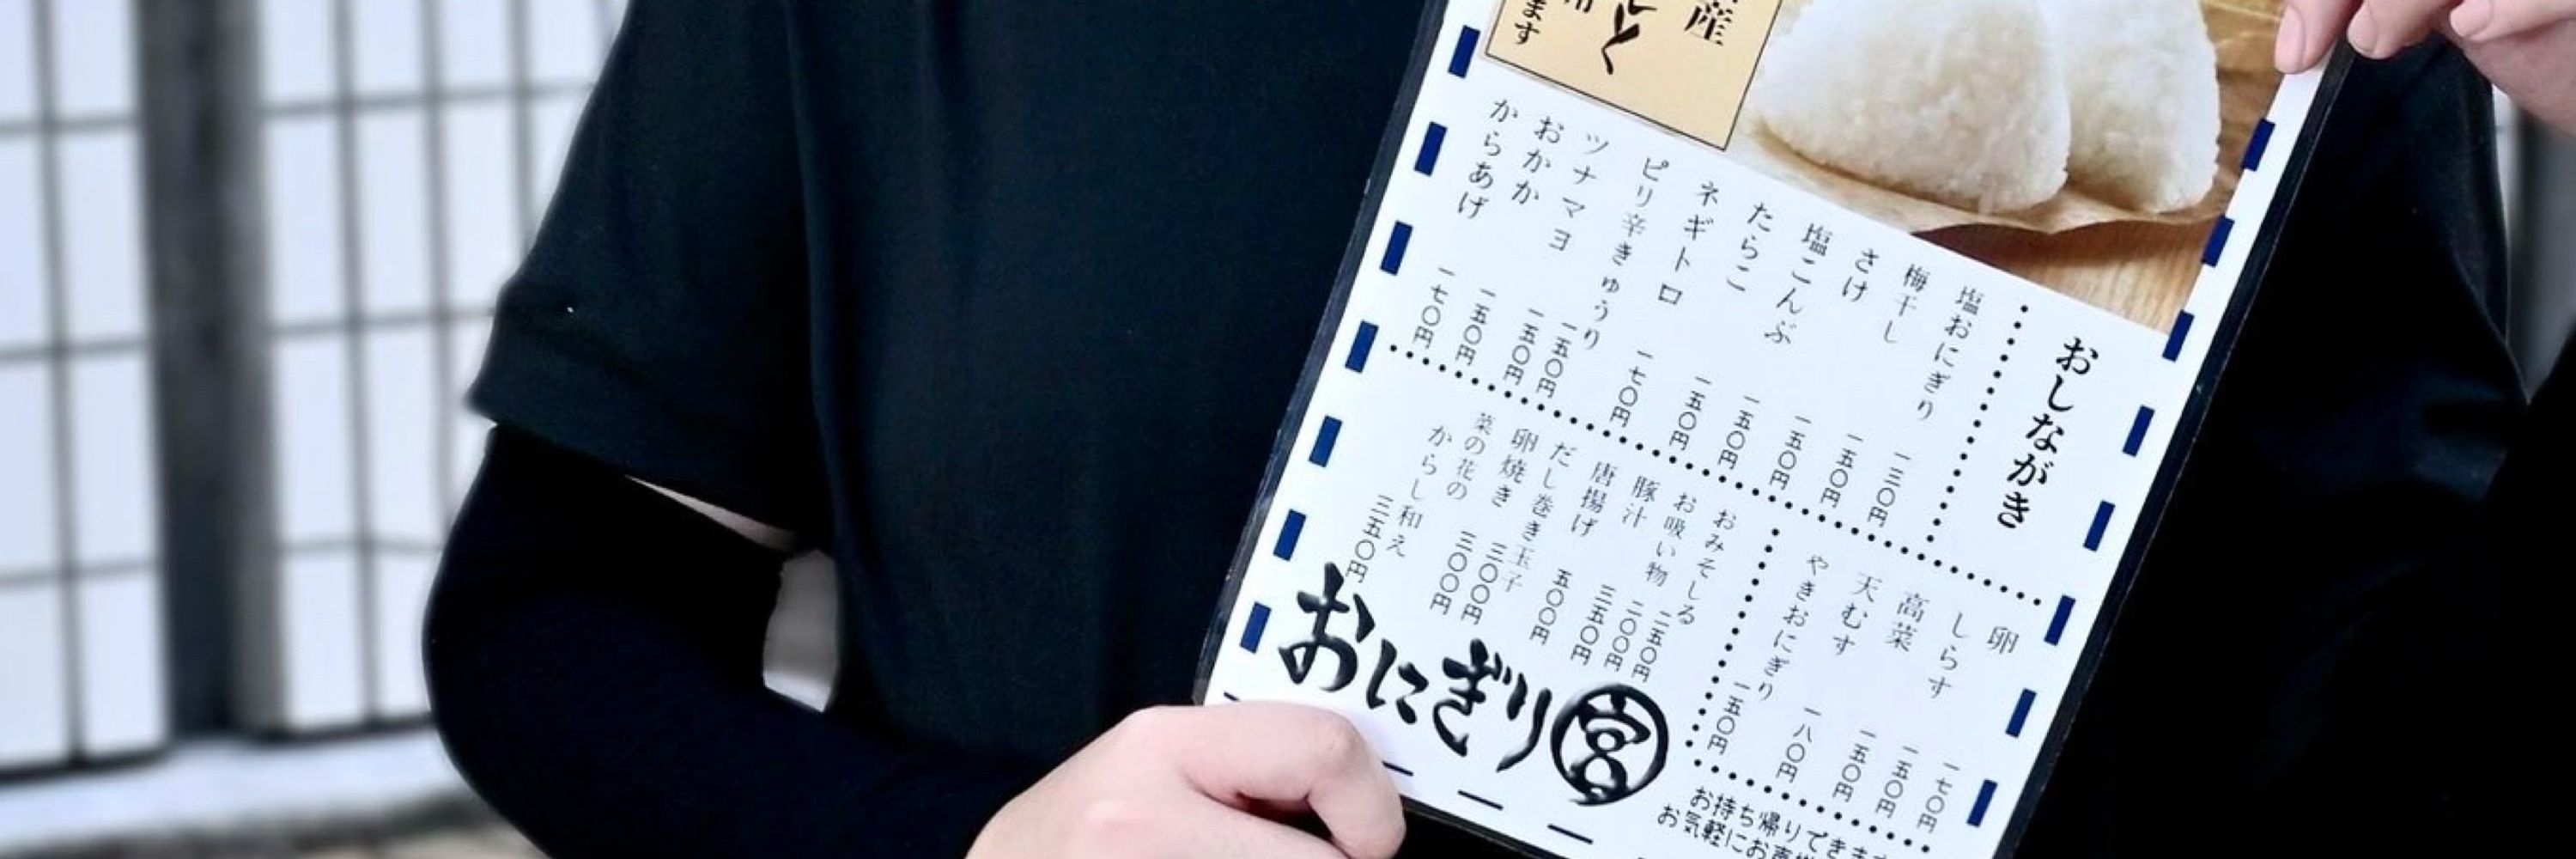 産
ます
おしながき
塩おにぎり 一三〇円
梅干し 一五〇円
さけ 一五〇円
塩こんぶ 一五〇円
たらこ 一五〇円
ネギトロ 一七〇円
ピリ辛きゅうり 一五〇円
ツナマヨ 一五〇円
おかか 一五〇円
からあげ 一七〇円
卵 一七〇円
しらす 一五〇円
高菜 一五〇円
天むす 一八〇円
やきおにぎり 一五〇円
おみそしる 二五〇円
お吸い物 二〇〇円
豚汁 三五〇円
唐揚げ 五〇〇円
だし巻き玉子 三〇〇円
卵焼き 三〇〇円
菜の花の
からし和え 三五〇円
おにぎり宮
お持ち帰りできま
お気軽にお声